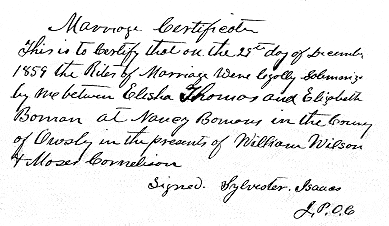 Marriage Certificate
This is to Certify that on the 29th day of December
1859 the Rites of Marriage Were legally Solemnize
by me between Elisha Thomas and Elizabeth
Boman at Nancy Bomans in the County
of Owsley in the presents of William Wilson
& Moses Cornelison
Signed. Sylvester. Isaacs
J. P. O. C